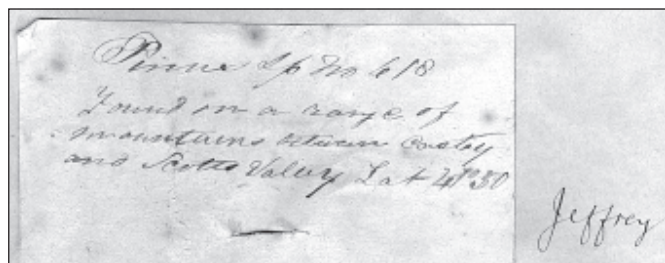 Pinus Sp No 618
Found on a range of
mountains between
and Scotts Valley Lat 41°30
Jeffrey